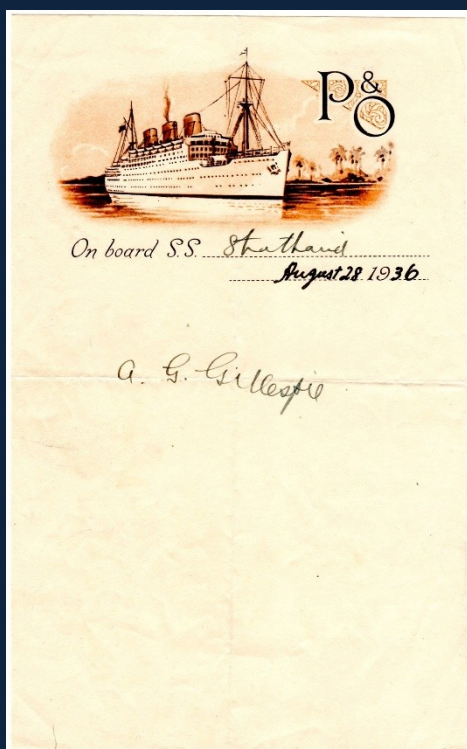 P&O
On board S.S. Strathaird
August 28 1936
A. G. Gillespie